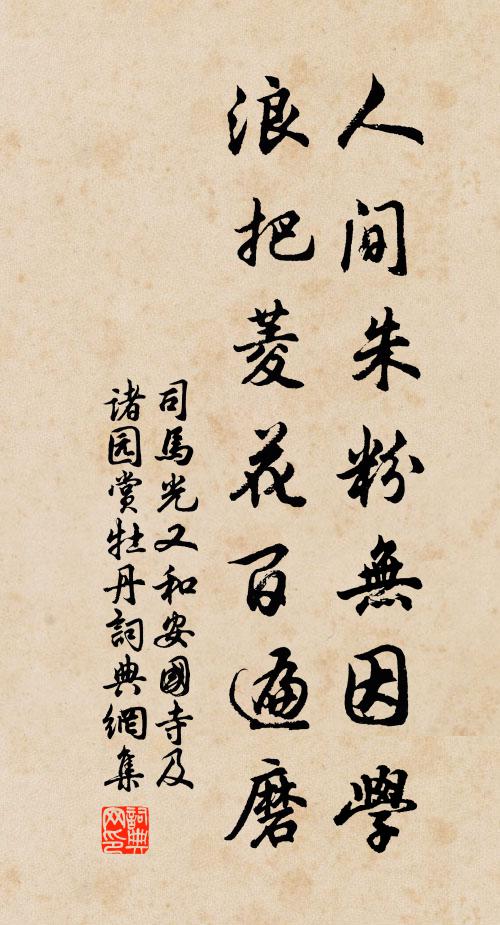 人間朱粉無因學
浪把菱花百遍磨
司馬光又和安國寺及
诸园赏牡丹詞典網集
詞典网印